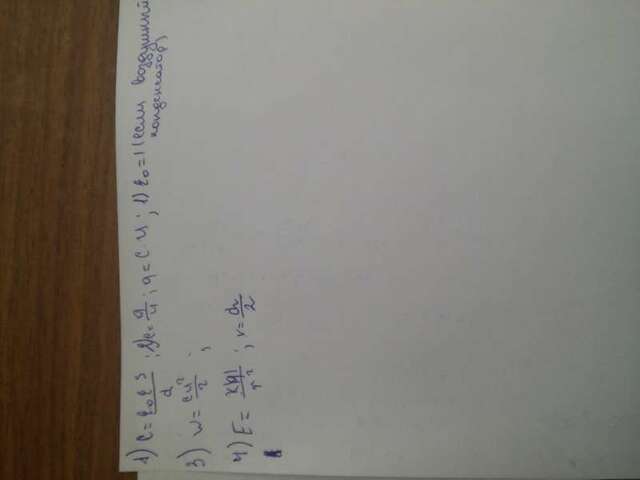 1) C = ε₀ε S / d ; 2) C = q / u ; q = C·u ; 1) ε₀ = 1 (если воздушный
конденсатор)
3) W = cu² / 2 ;
4) E = k|q| / r² ; r = d / 2